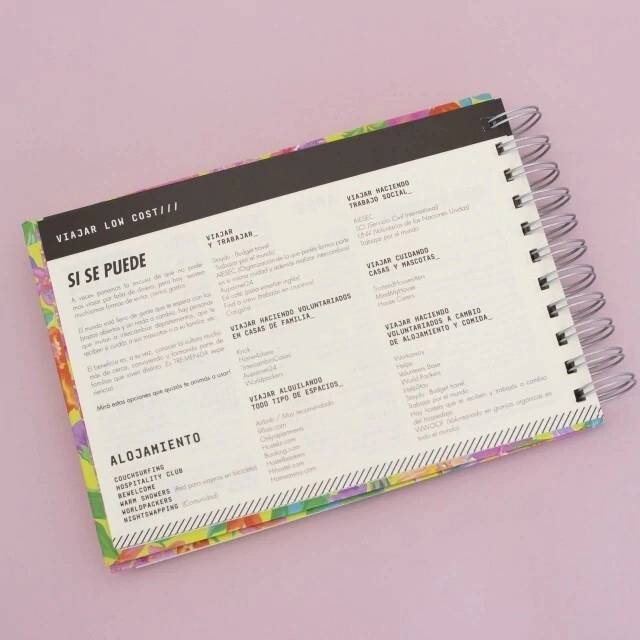 VIAJAR LOW COST///
SI SE PUEDE
A veces, ponemos la excusa de que no pode-
mos viajar por falta de dinero, pero hay existen
muchísimas formas de evitar ciertos gastos.
El mundo está lleno de gente que te espera con los
brazos abiertos y sin nada a cambio, hay personas
que invitan a intercambiar departamentos, que te
reciben a cuidar a sus mascotas o a su familia, etc.
El beneficio es, a la vez, conocer la cultura mucho
más de cerca, conviviendo y formando parte de
familias que viven distinto. Es TREMENDA expe-
riencia!
Mirá estas opciones que quizás te animás a usar!
ALOJAMIENTO
COUCHSURFING
HOSPITALITY CLUB
BEWELCOME
WARM SHOWERS (Red para viajeros en bicicleta)
WORLDPACKERS
NIGHTSWAPPING (Comunidad)
VIAJAR
Y TRABAJAR_
Skyidu - Budget travel
Trabajar por el mundo
AIESEC (Organización de la que podés formar parte
en tu misma ciudad y además realizar intercambios)
Aupairnet24
Ed café (para enseñar inglés)
Find a crew (trabajar en cruceros)
Craiglist
VIAJAR HACIENDO VOLUNTARIADOS
EN CASAS DE FAMILIA_
Knok
Home4share
IntercambioCasas
Aupairnet24
Worldpackers
VIAJAR ALQUILANDO
TODO TIPO DE ESPACIOS_
Airbnb / Muy recomendado
9flats.com
Only-apartments
Hostelz.com
Booking.com
HostelBookers
Hihostel.com
Homeaway.com
VIAJAR HACIENDO
TRABAJO SOCIAL_
AIESEC
SCI (Servicio Civil International)
UNV (Voluntarios de las Naciones Unidas)
Trabajar por el mundo
VIAJAR CUIDANDO
CASAS Y MASCOTAS_
TrustedHousesitters
MindMyHouse
House Carers
VIAJAR HACIENDO
VOLUNTARIADOS A CAMBIO
DE ALOJAMIENTO Y COMIDA_
Workaway
Helpx
Volunteers Base
World Packers
HelpStay
Skyidu - Budget travel
Trabajar por el mundo
Hay hostels que te reciben y trabajás a cambio
del hospedaje
WWOOF (Voluntariado en granjas orgánicas en
todo el mundo)